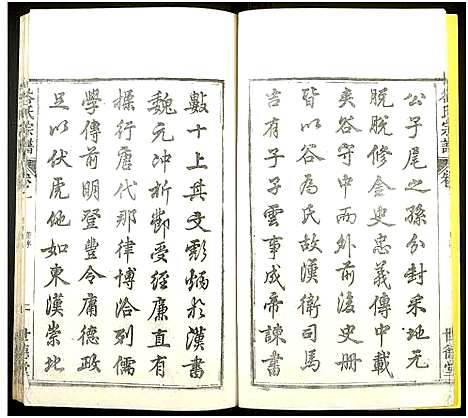 公子尾之孫分封采地元
脫脫修金史忠義傳中載
夾谷守中而外前後史冊
皆以谷為氏故漢衛司馬
吉有子子雲事成帝諫書
數十上其文彪炳於漢書
魏元冲析鄭受經廉直有
操行唐代那律博洽列儒
學傳前明登豐令庸德政
足以伏虎他如東漢崇地
氏宗譜
世德堂